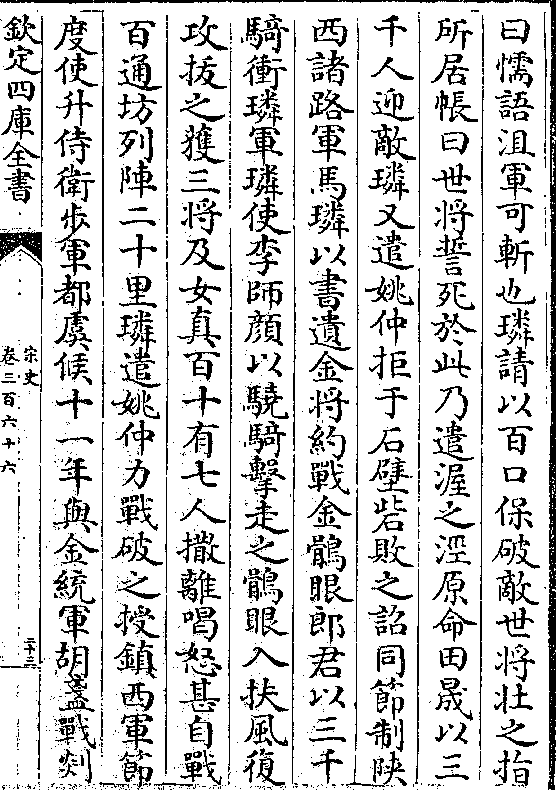 曰懦語沮軍可斬也璘請以百口保破敵世将壮之指
所居帳曰世将誓死於此乃遣渥之涇原命田晟以三
千人迎敵璘又遣姚仲拒于石壁砦敗之詔同節制陝
西諸路軍馬璘以書遺金将約戰金鶻眼郎君以三千
騎衝璘軍璘使李師顔以驍騎擊走之鶻眼入扶風復
攻拔之獲三将及女真百十有七人撒離喝怒甚自戰
百通坊列陣二十里璘遣姚仲力戰破之授鎮西軍節
度使升侍衛步軍都虞候十一年與金統軍胡盞戰剡
欽定四庫全書
宋史
卷三百六十六
二十三